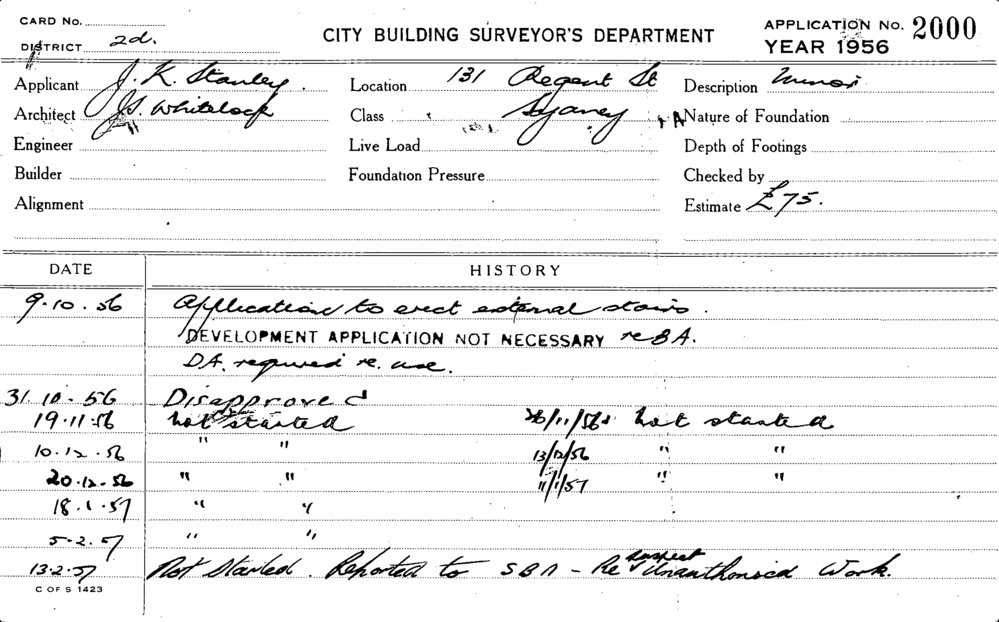 CARD No.
DISTRICT 2d.
CITY BUILDING SURVEYOR'S DEPARTMENT
APPLICATION No. 2000
YEAR 1956
Applicant J. K. Stanley.
Architect J.S. Whitelock
Engineer
Builder
Alignment
Location 131 Regent St
Class Sydney
Live Load
Foundation Pressure
Description Minor
Nature of Foundation
Depth of Footings
Checked by
Estimate £75.
DATE HISTORY
9.10.56 Application to erect external stairs.
DEVELOPMENT APPLICATION NOT NECESSARY re BA.
DA. required re. use.
31.10.56 Disapproved
19.11.56 Not started 26/11/56 Not started
10.12.56 " " 13/12/56 " "
20.12.56 " " 11/1/57 " "
18.1.57 " "
5-2.57 " "
13.2.57 Not Started. Reported to SBA - Re suspect Unauthorised Work.
C OF S 1423